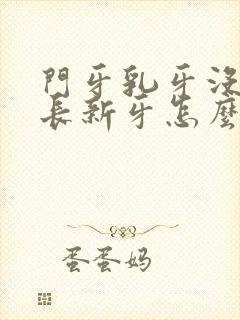 門牙乳牙沒
長新牙怎麼
蛋蛋妈